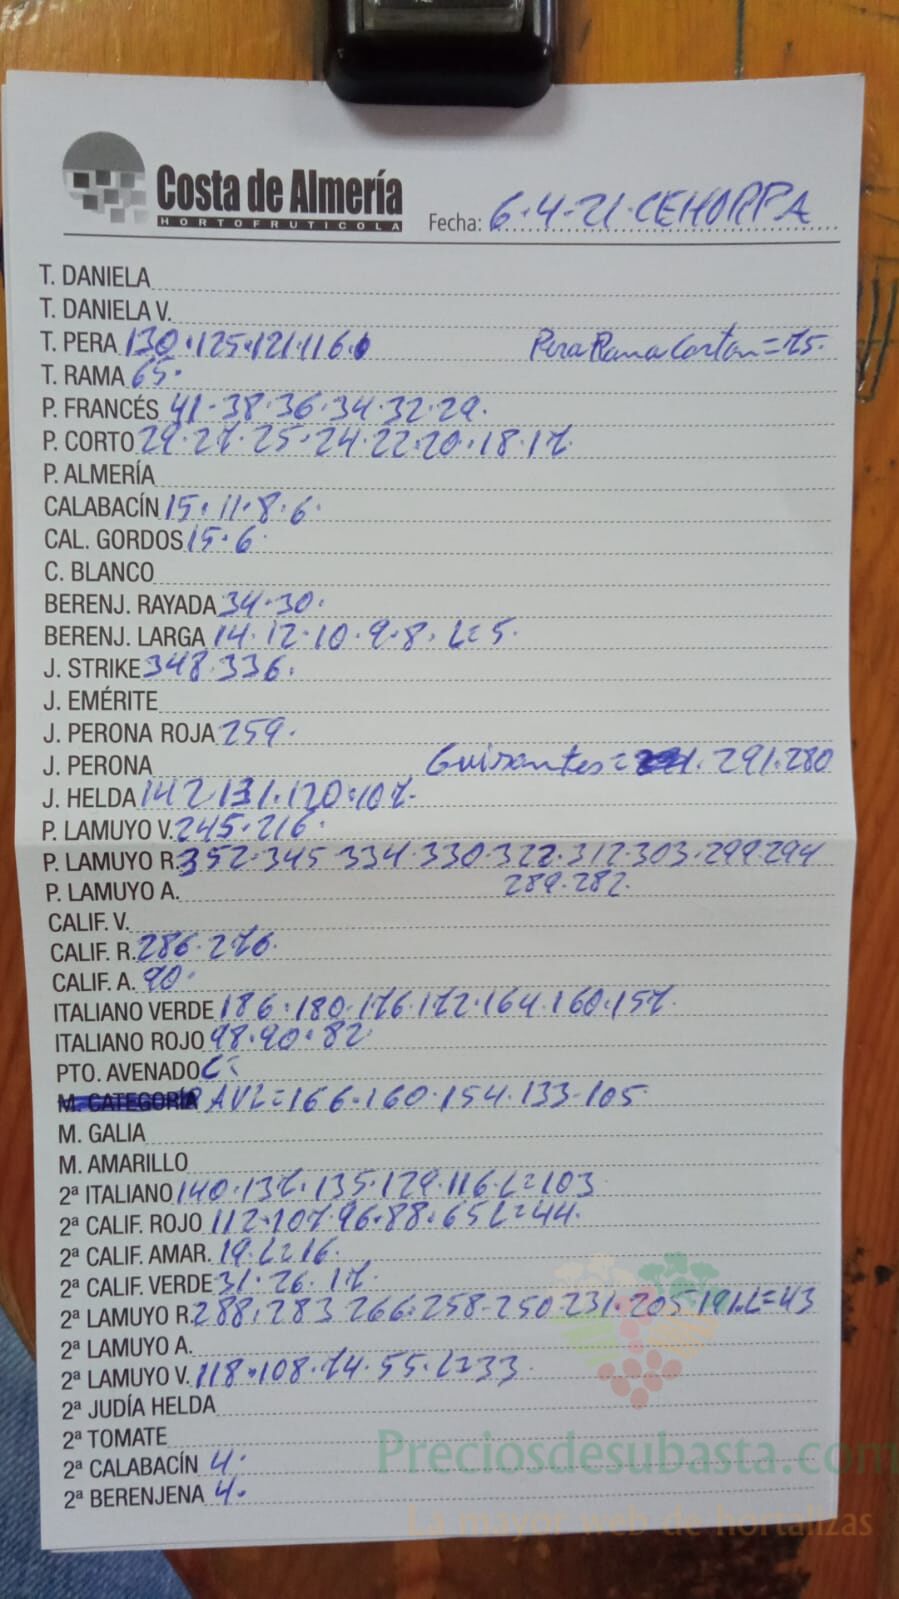 Costa de Almería
HORTOFRUTICOLA
Fecha: 6.4.21.CEHORPA
T. DANIELA
T. DANIELA V.
T. PERA 130.125.121.116. Pera Rama Corton=75.
T. RAMA 65.
P. FRANCÉS 41.38.36.34.32.29.
P. CORTO 29.27.25.24.22.20.18.17.
P. ALMERÍA
CALABACÍN 15.11.8.6.
CAL. GORDOS 15.6.
C. BLANCO
BERENJ. RAYADA 34.30.
BERENJ. LARGA 14.12.10.9.8.L=5.
J. STRIKE 348.336.
J. EMÉRITE
J. PERONA ROJA 259.
J. PERONA Guisantes= 291.280
J. HELDA 142.131.120.107.
P. LAMUYO V. 245.216.
P. LAMUYO R. 352.345.334.330.322.312.303.299.294
P. LAMUYO A. 289.282.
CALIF. V.
CALIF. R. 286.276.
CALIF. A. 90.
ITALIANO VERDE 186.180.176.172.164.160.157.
ITALIANO ROJO 98.90.82.
PTO. AVENADO
M. CATEGORÍA 166.160.154.133.105.
M. GALIA
M. AMARILLO
2ª ITALIANO 140.137.135.129.116.L=103
2ª CALIF. ROJO 112.107.96.88.65L=44.
2ª CALIF. AMAR. 19.L=16.
2ª CALIF. VERDE 31.26.17.
2ª LAMUYO R. 288.283.266.258.250.231.205.191.L=43
2ª LAMUYO A.
2ª LAMUYO V. 118.108.74.55.L=33.
2ª JUDÍA HELDA
2ª TOMATE
2ª CALABACÍN 4.
2ª BERENJENA 4.
Preciosdesubasta.com
La mayor web de hortalizas